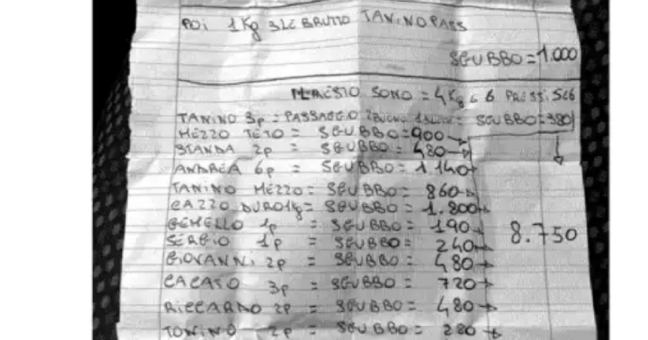 POI 1 Kg 3LE BRUTTO TANINO PASS
SGUBBO = 1.000
SONO = 4 Kg E 6 PRESI. 5E6
TANINO 3p = PASSAGGIO SGUBBO = 380
MEZZO TETO = SGUBBO = 900
STANDA 2p = SGUBBO = 480
ANDREA 6p = SGUBBO = 1140
TANINO MEZZO = SGUBBO = 860
CAZZO DURO 1kg = SGUBBO = 1.800
GEMELLO 1p = SGUBBO = 190
SERGIO 1p = SGUBBO = 240
8.750
GIOVANNI 2p = SGUBBO = 480
CACATO 3p = SGUBBO = 720
RICCARDO 2p = SGUBBO = 480
TONINO 2p = SGUBBO = 280